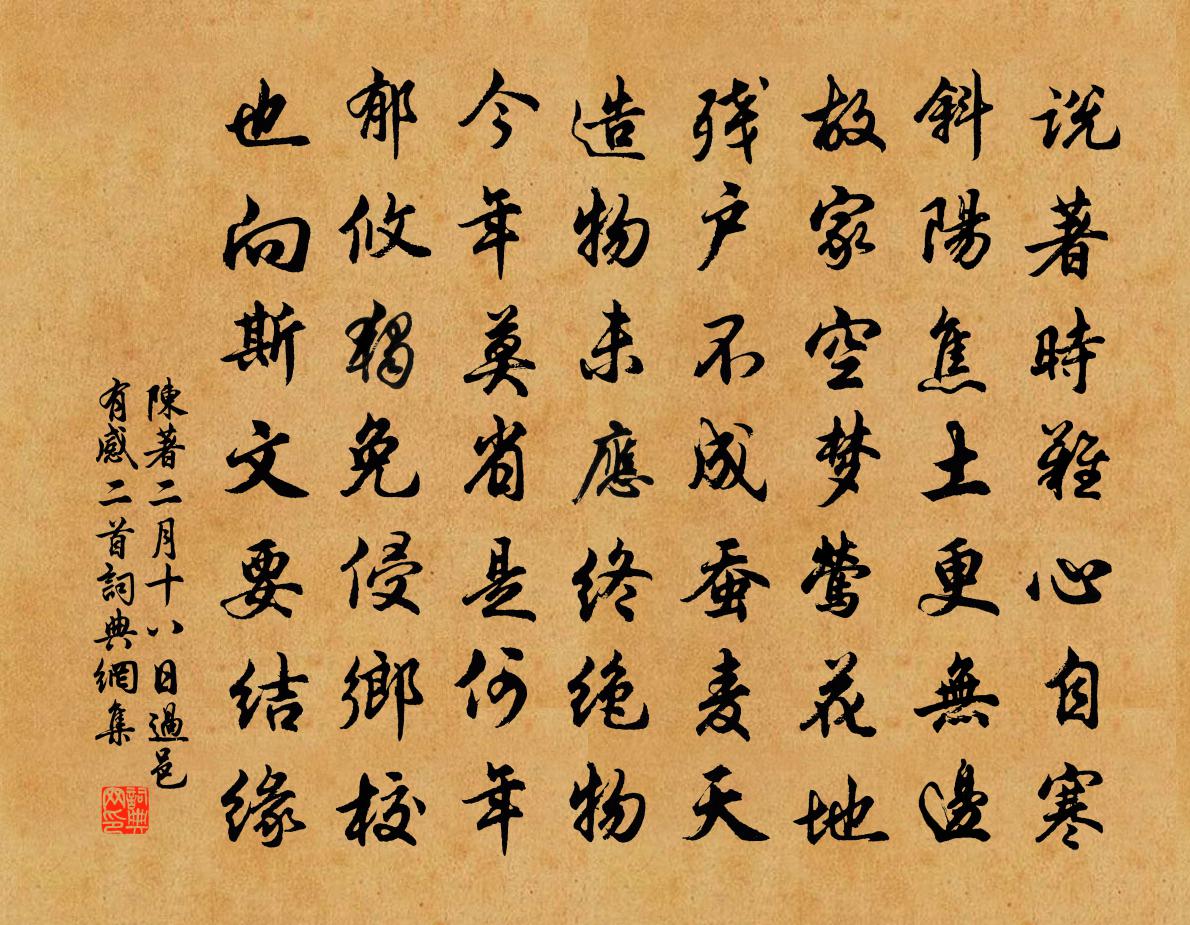 说著時難心自寒
斜陽焦土更無邊
故家空梦莺花地
残户不成蚕麦天
造物未應终绝物
今年莫省是何年
郁攸独免侵鄉校
也向斯文要结缘
陳著二月十八日過邑
有感二首詞典網集
詞典
网印